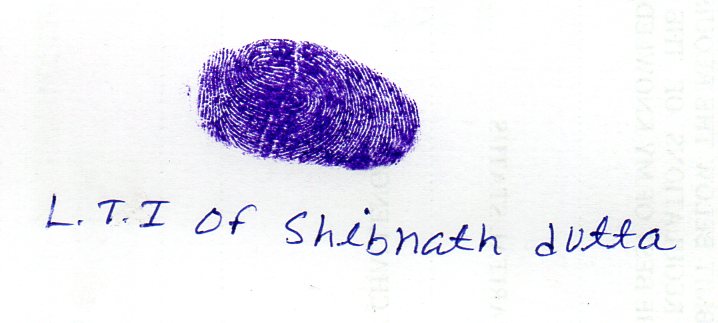 L.T.I of Shibnath dutta